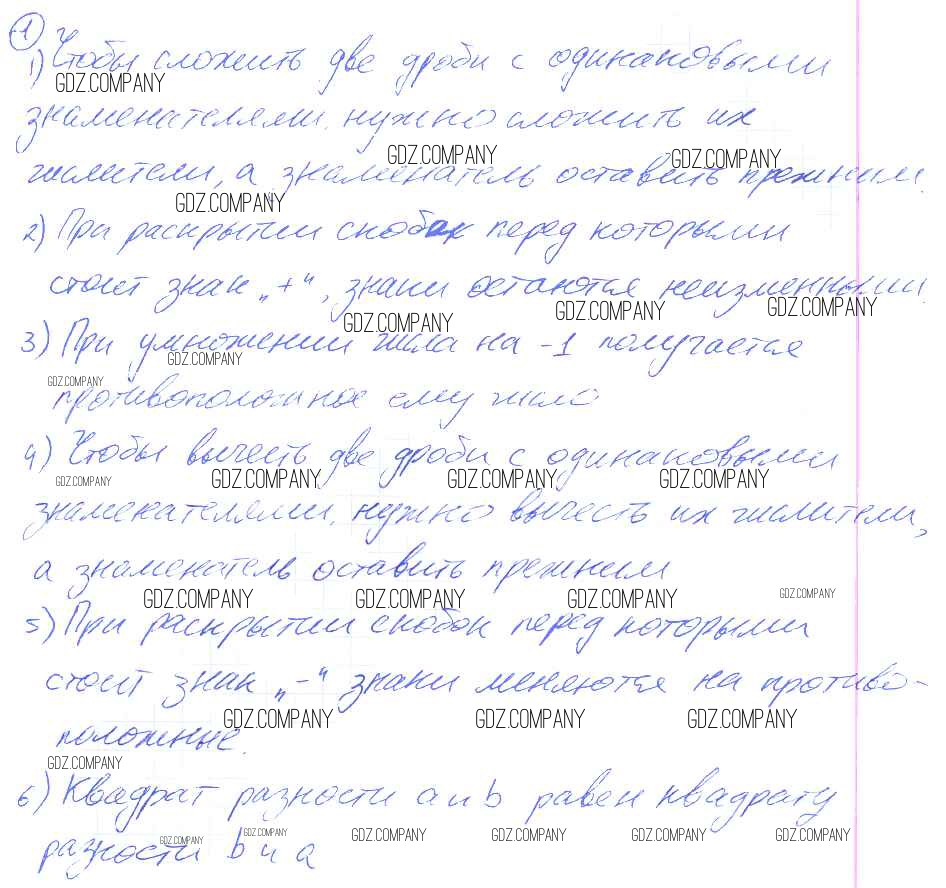 1
1) Чтобы сложить две дроби с одинаковыми
GDZ.COMPANY
знаменателями, нужно сложить их
GDZ.COMPANY GDZ.COMPANY
числители, а знаменатель оставить прежним.
GDZ.COMPANY
2) При раскрытии скобок перед которыми
стоит знак „+“, знаки остаются неизменными.
GDZ.COMPANY GDZ.COMPANY GDZ.COMPANY
3) При умножении числа на -1 получается
GDZ.COMPANY
GDZ.COMPANY
противоположное ему число
4) Чтобы вычесть две дроби с одинаковыми
GDZ.COMPANY GDZ.COMPANY GDZ.COMPANY GDZ.COMPANY
знаменателями, нужно вычесть их числители,
а знаменатель оставить прежним
GDZ.COMPANY GDZ.COMPANY GDZ.COMPANY GDZ.COMPANY
5) При раскрытии скобок перед которыми
стоит знак „-“ знаки меняются на противо-
GDZ.COMPANY GDZ.COMPANY GDZ.COMPANY
положные.
GDZ.COMPANY
6) Квадрат разности a и b равен квадрату
разности b и a
GDZ.COMPANY GDZ.COMPANY GDZ.COMPANY GDZ.COMPANY GDZ.COMPANY GDZ.COMPANY